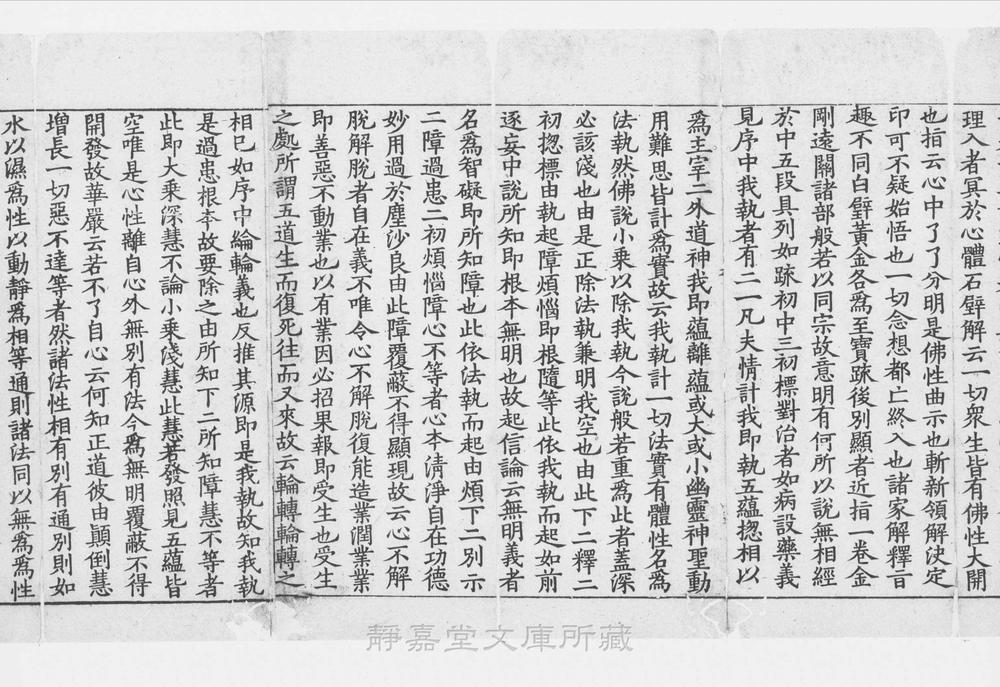 理入者冥於心體石壁解云一切衆生皆有佛性大開
也指云心中了了分明是佛性曲示也斬新領解決定
印可不疑始悟也一切念想都亡終入也諸家解釋盲
趣不同白璧黃金各爲至寶踈後別顯者近指一卷金
剛遠關諸部般若以同宗故意明有何所以說無相經
於中五段具列如踈初中三初標對治者如病設藥義
見序中我執者有二一凡夫情計我即執五蘊揔相以
爲主宰二外道神我即蘊離蘊或大或小幽靈神聖動
用難思皆計爲實故云我執計一切法實有體性名爲
法執然佛說小乗以除我執今說般若重爲此者蓋深
必該淺也由是正除法執兼明我空也由此下二釋二
初揔標由執起障煩惱即根隨等此依我執而起如前
逐妄中說所知即根本無明也故起信論云無明義者
名爲智礙即所知障也此依法執而起由煩下二別示
二障過患二初煩惱障心不等者心本清淨自在功德
妙用過於塵沙良由此障覆蔽不得顯現故云心不解
脫解脫者自在義不唯令心不解脫復能造業潤業業
即善惡不動業也以有業因必招果報即受生也受生
之處所謂五道生而復死往而又來故云輪轉輪轉之
相已如序中綸輪義也反推其源即是我執故知我執
是過患根本故要除之由所知下二所知障慧不等者
此即大乗深慧不論小乗淺慧此慧若發照見五蘊皆
空唯是心性離自心外無別有法今爲無明覆蔽不得
開發故華嚴云若不了自心云何知正道彼由顚倒慧
增長一切惡不達等者然諸法性相有別有通別則如
水以濕爲性以動靜爲相等通則諸法同以無爲爲性
靜嘉堂文庫所藏